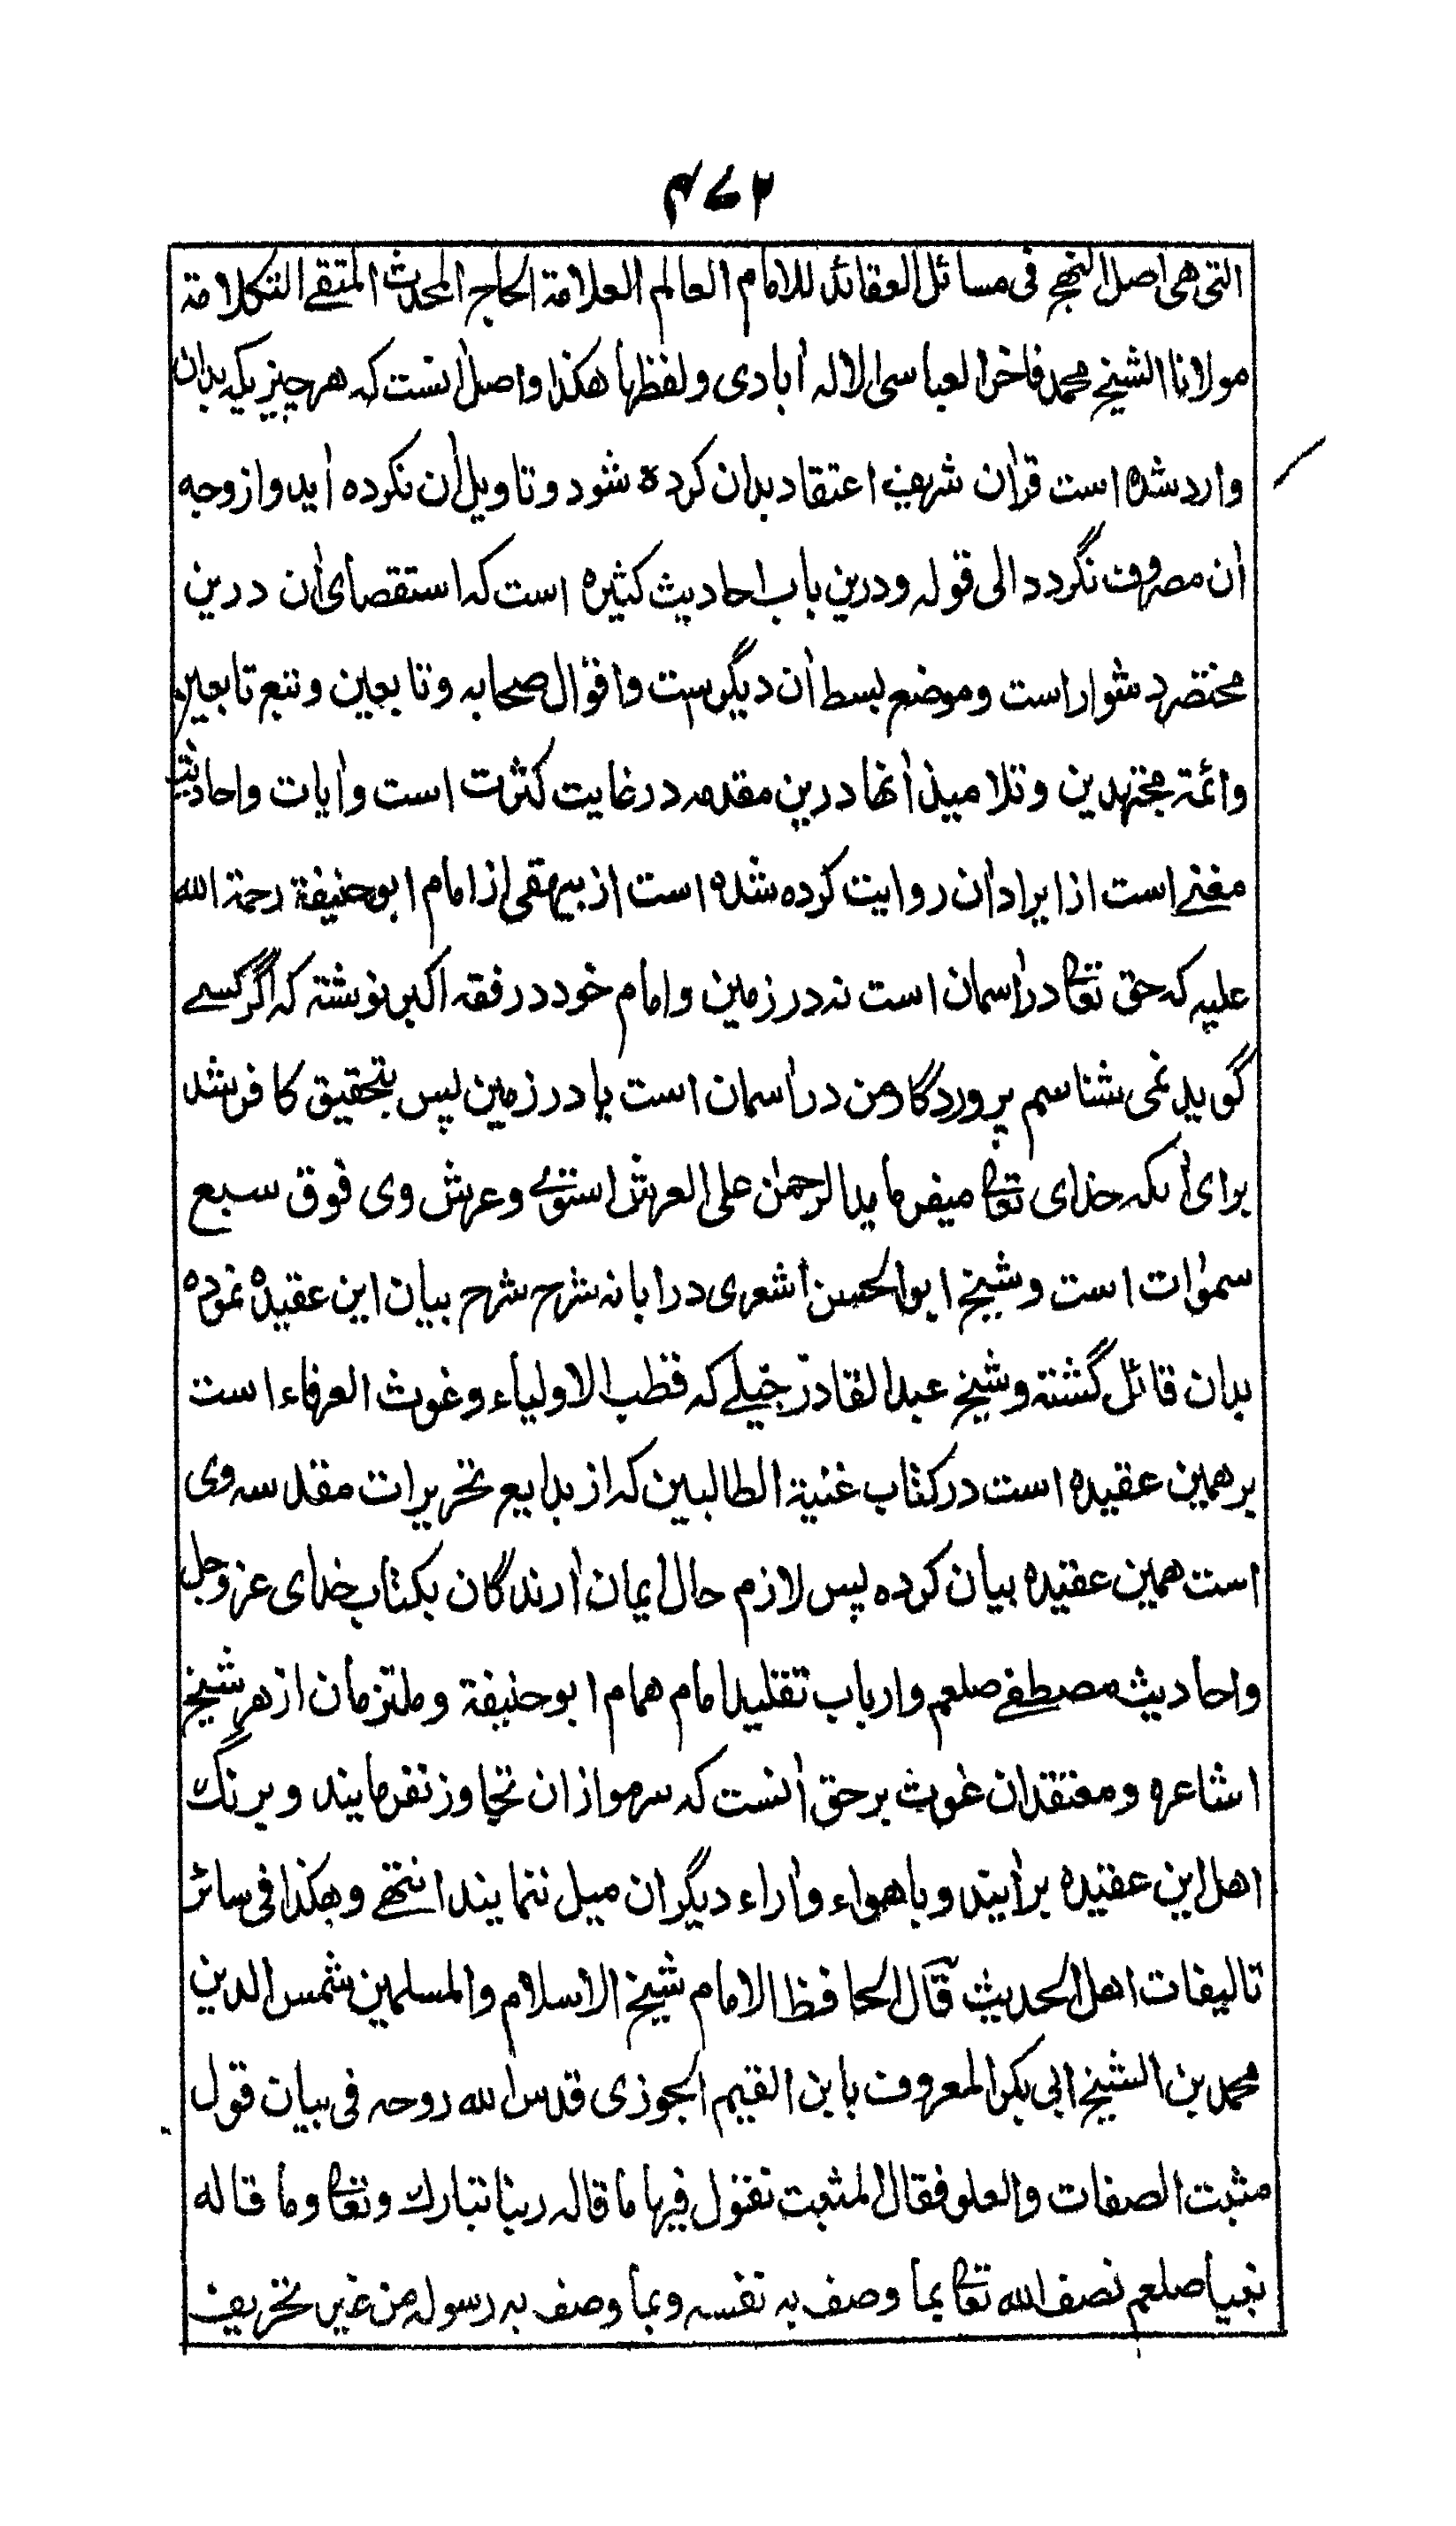 ۴۷۲
التی هی اصل النهج فی مسائل العقائد للامام العالم العلامة الحاج المحدث المتقے التکلامة
مولانا الشیخ محمد فاخر العباسی الالہ اٰبادی ولفظها هکذا واصل اٰنست کہ هر چیزیکہ بدان
وارد شدہ است قراٰن شریف اعتقاد بدان کردہ شود وتاویل اٰن نکردہ اٰید وازوجہ
اٰن مصروف نگردد الی قولہ ودرین باب احادیث کثیرہ است کہ استقصای اٰن درین
مختصر دشوار است وموضع بسط اٰن دیگرست واقوال صحابہ وتابعین وتبع تابعین
وائمۃ مجتهدین وتلامیذ اٰنها درین مقدمہ در غایت کثرت است واٰیات واحادیث
مغنے است از ایراد اٰن روایت کردہ شدہ است از بیهقی از امام ابوحنیفة رحمة الله
علیہ کہ حق تعالٰی در اٰسمان است نہ در زمین وامام خود در فقہ اکبر نوشتہ کہ اگر کسے
گوید نمی شناسم پروردگار من در اٰسمان است یا در زمین پس بتحقیق کافر شد
برای اٰنکہ خدای تعالٰی میفرماید الرحمٰن علی العرش استوٰے وعرش وی فوق سبع
سمٰوات است وشیخ ابوالحسن اشعری در ابانہ شرح شرح بیان این عقیدہ نمودہ
بدان قائل گشتہ وشیخ عبدالقادر جیلے کہ قطب الاولیاء وغوث العرفاء است
برهمین عقیدہ است در کتاب غنیة الطالبین کہ از بدایع تحریرات مقدسہ وی
است همین عقیدہ بیان کردہ پس لازم حال ایمان اٰرندگان بکتاب خدای عزوجل
واحادیث مصطفے صلعم وارباب تقلید امام همام ابوحنیفة وملتزمان از هر شیخ
اشاعرہ ومعتقدان غوث برحق اٰنست کہ سرمو ازان تجاوز نفرمایند وبرنگ
اهل این عقیدہ براٰیند وباهواء واٰراء دیگران میل ننمایند انتهے وهکذا فی سائر
تالیفات اهل الحدیث قال الحافظ الامام شیخ الاسلام والمسلمین شمس الدین
محمد بن الشیخ ابی بکر المعروف بابن القیم الجوزی قدس الله روحہ فی بیان قول
مثبت الصفات والعلو فقال المثبت نقول فیها ما قالہ ربنا تبارک وتعالٰی وما قاله
نبیا صلعم نصف الله تعالٰی بما وصف بہ نفسہ وبما وصف بہ رسولہ من غیر تحریف